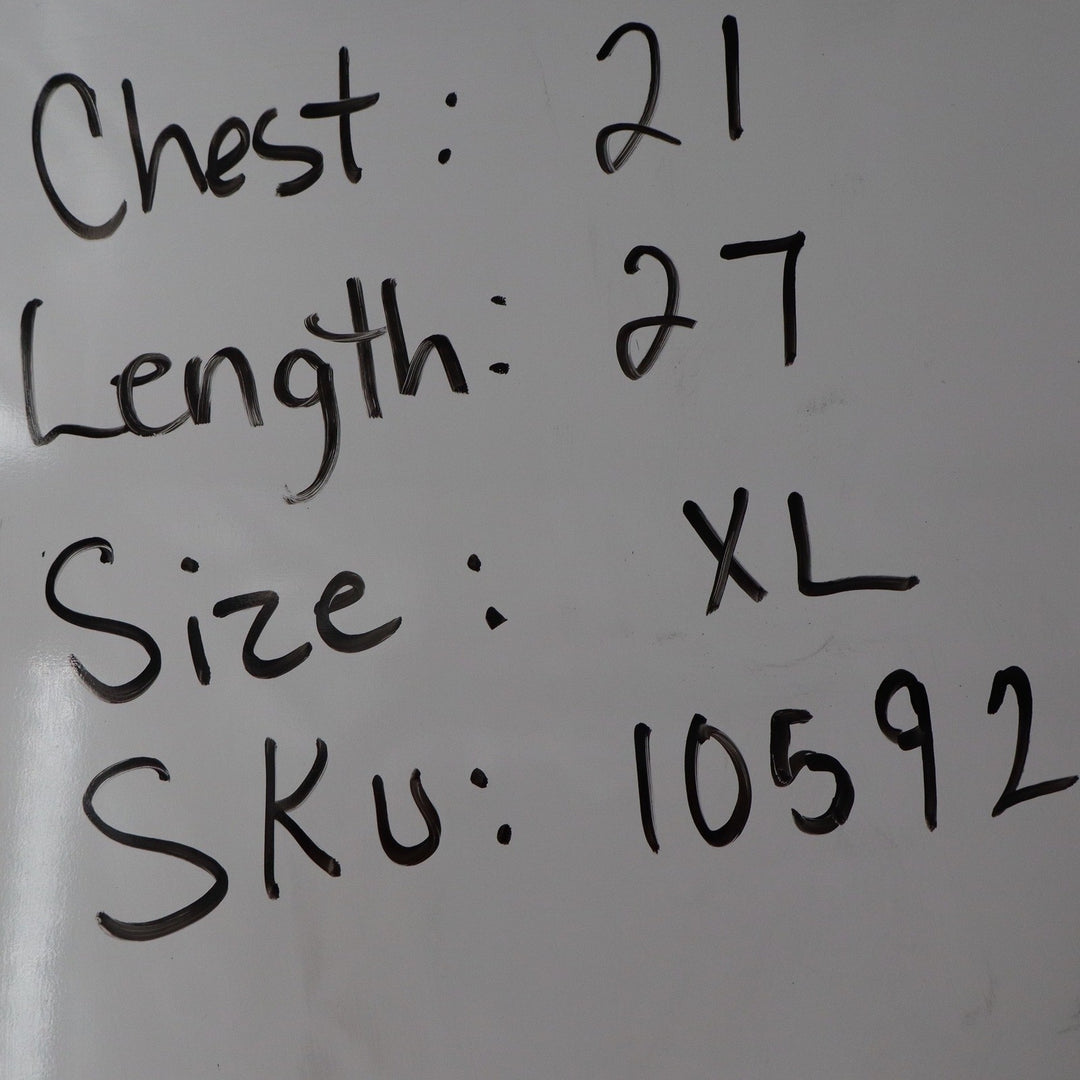 Chest: 21
Length: 27
Size: XL
SKU: 10592